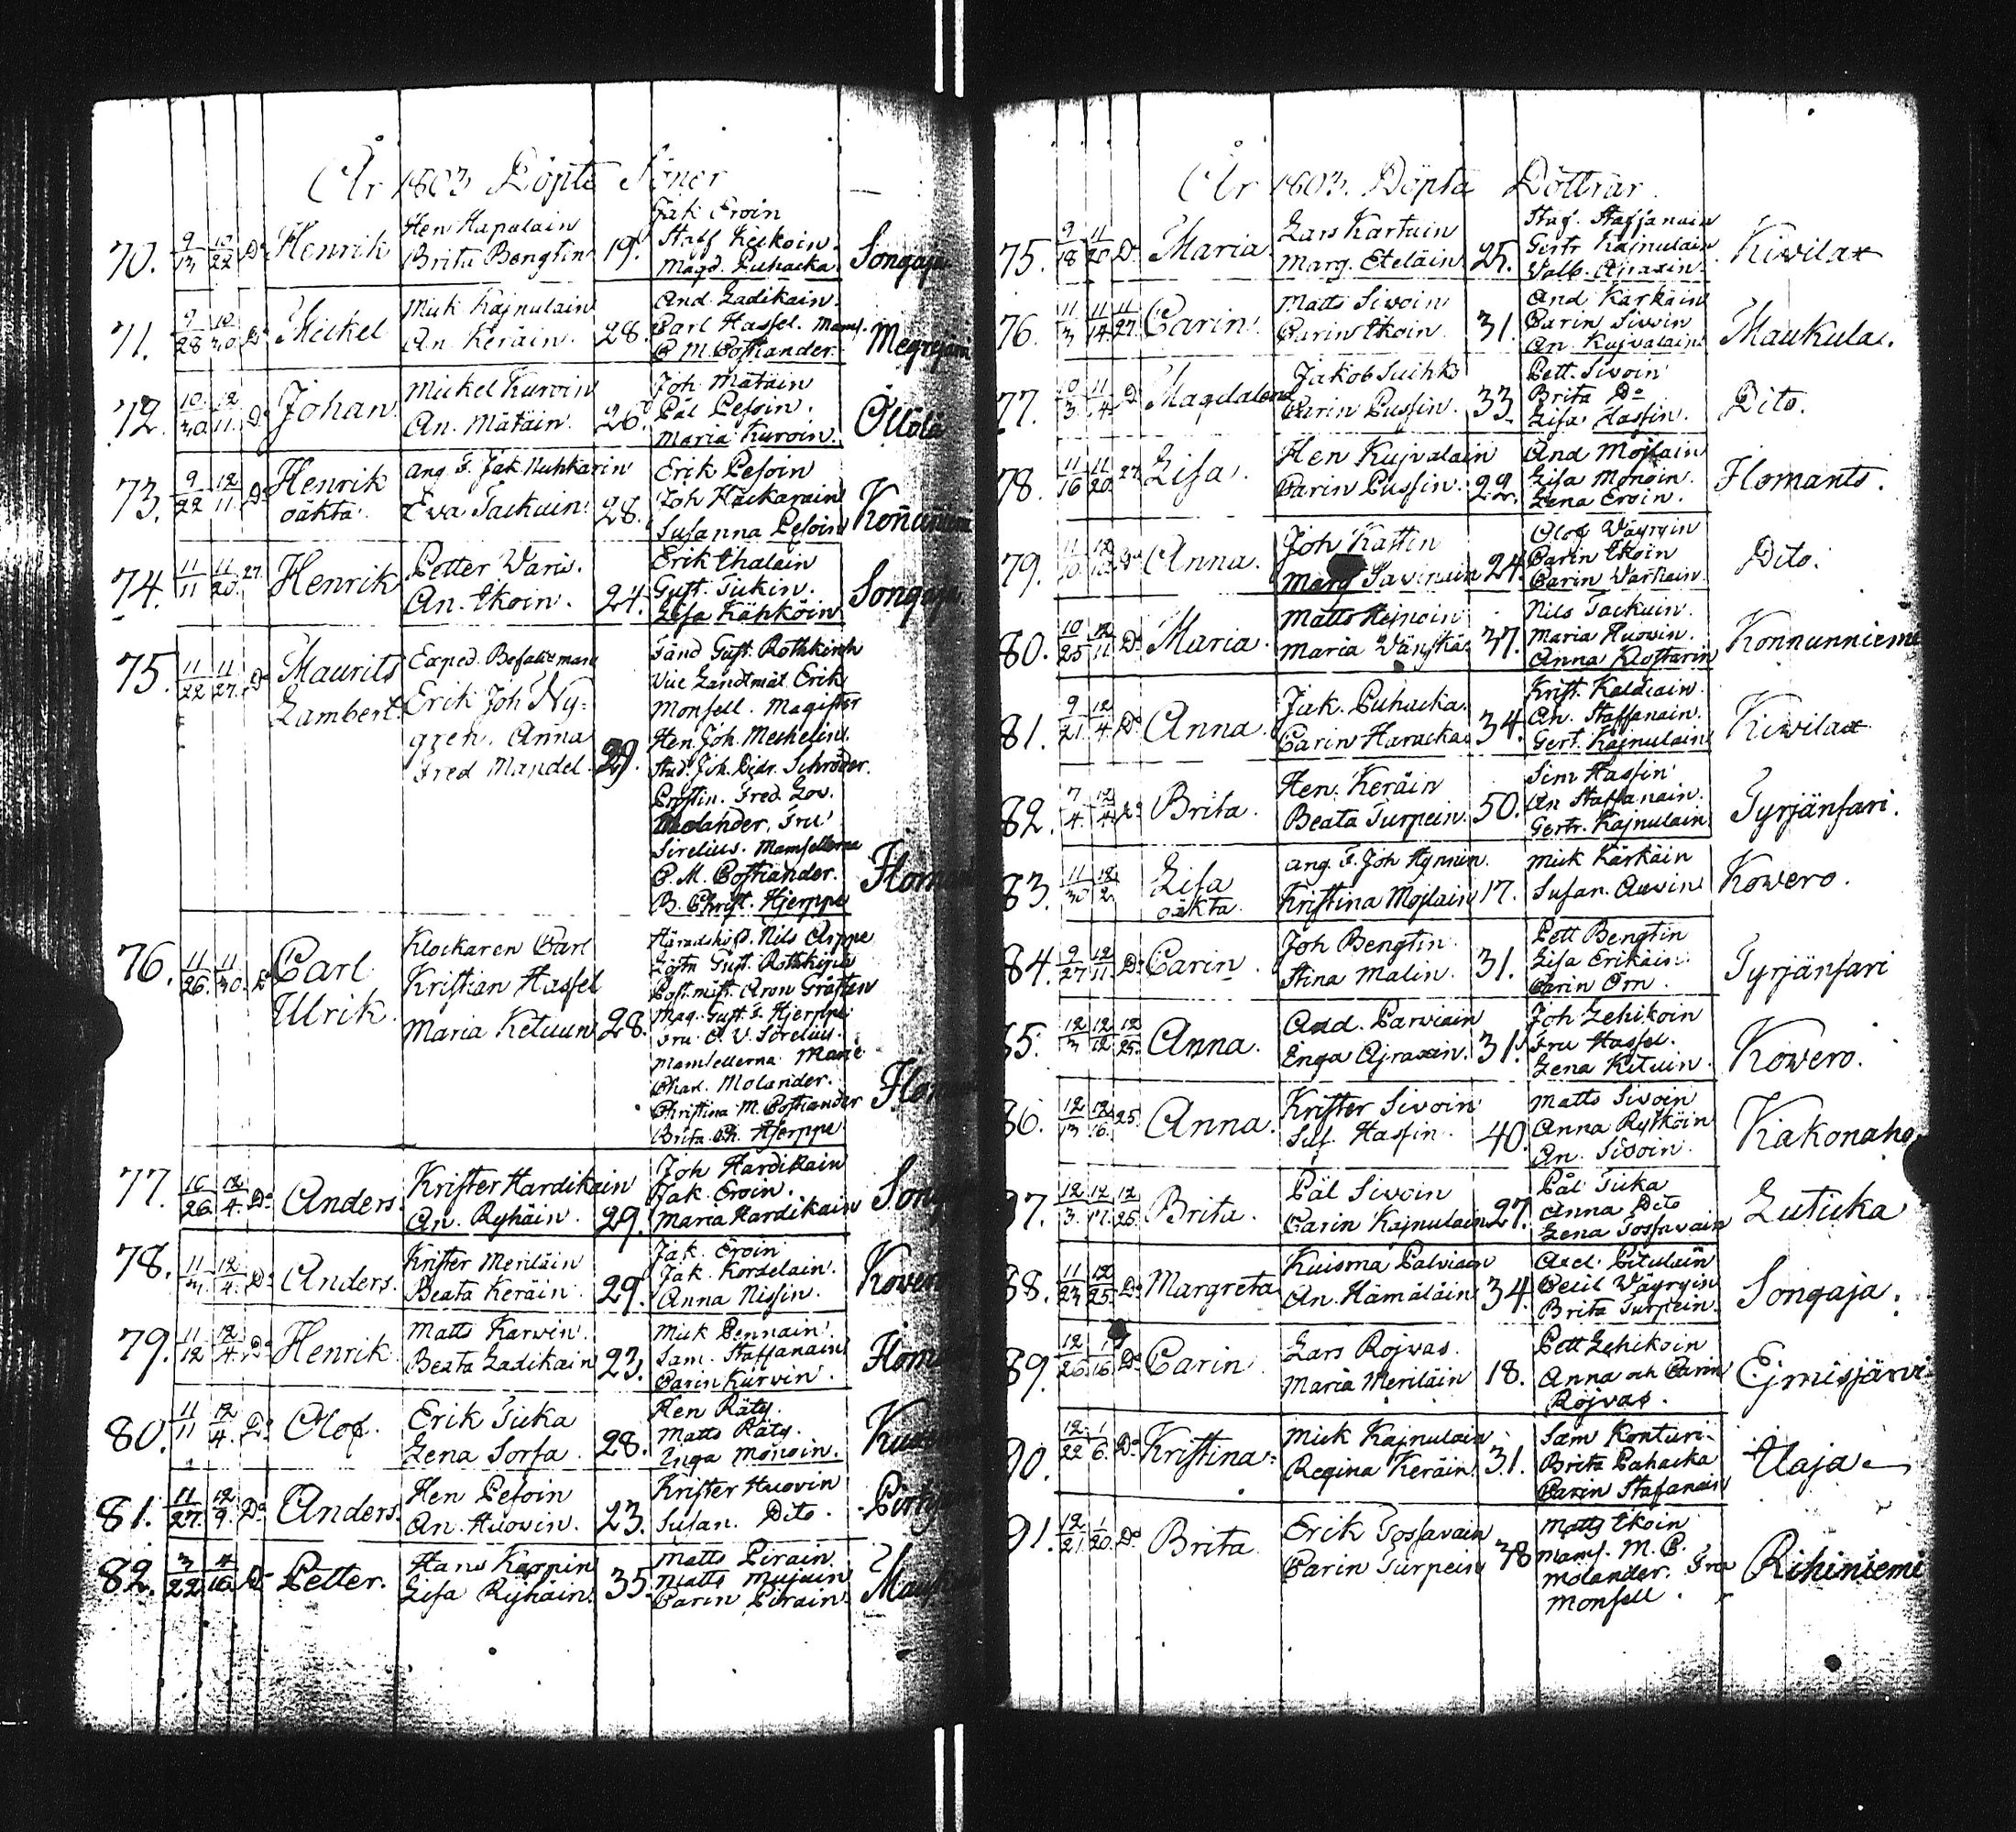 År 1803 Döpte Söner
70. 9/13 10/22 Do Henrik Hen Hapalain Brita Bengtin 19. Jak Eroin
Staff Keckoin.
Magd. Puhacka. Songaja
71. 9/28 10/30 Do Mickel Mick Kajnulain An. Keräin. 28. And. Ladikain.
Carl Hassel. Mams.
C M. Costiander. Megrijärvi
72. 10/30 12/11. Do Johan. Mickel Kurvin An. Mätäin. 26. Joh. Mätäin
Pål Pesoin.
Maria Kuroin. Öllölä
73. 9/22 12/11. Do Henrik oäkta. ang. F. Jak. Nuhkarin Eva Tackuin. 28. Erik Pesoin
Joh Häckarain
Susanna Pesoin
74. 11/11 11/20. 27. Henrik Petter Waris. An. Ikoin. 24. Erik Ihalain
Gust. Tickin.
Lisa Käpköin Songaja.
75. 11/22 11/27. Do Maurits Lambert. Exped. Befallsman
Erik Joh Ny=
gren. Anna
Fred Mandel. 29. Fänd Gust. Rothkirch
Vice Landtmät. Erik
Monsell. Magister
Hen. Joh. Mechelin.
Stud. Joh. Didr. Schröder.
Prostin. Fred. Lov.
Molander. Fru
Sirelius. Mamsellerna
C. M. Costiander.
B. Christ. Hjerppe
76. 11/26. 11/30. Do Carl Ulrik. Klockaren Carl
Kristian Hassel
Maria Ketuun 28. Häradshöfd. Nils Arppe
Löjtn Gust. Rothkirch
Postmäst. Aron Gråsten
Mag. Gust. F. Hjerppe
Fru C. V. Sirelius.
Mamsellerna Marie
Char. Molander.
Christina M. Costiander
Brita Ch. Hjerppe
77. 10/26 12/4. Do Anders. Krister Hardikain An. Ryhäin. 29. Joh Hardikain
Jak. Eroin.
Maria Hardikain
78. 11/3 12/4. Do Anders. Krister Meriläin Beata Keräin. 29. Jak. Eroin
Jak. Kordelain.
Anna Nissin.
79. 11/12 12/4. Do Henrik Matts Karvin. Beata Ladikain 23. Mick Pennain.
Sam. Staffanain
Carin Kurvin.
80. 11/11 12/4. Do Olof. Erik Ticka Lena Sorsa. 28. Hen Räty.
Matts Räty.
Inga Monoin.
81. 11/27. 12/9. Do Anders. Hen Pesoin An. Huovin. 23. Krister Huovin
Susan. Dito.
82. 3/22 4/16 Do Petter. Hans Karpin Lisa Ryhäin. 35. Matts Pirain.
Matts Mujuin
Carin Pirain.
År 1803. Döpta Döttrar.
75. 9/18 11/20 Do Maria Lars Kartuin Marg. Eteläin 25. Staf. Staffanain
Gertr Kajnulain
Valb. Ajraxin. Kivilax
76. 11/3 11/14 11/27. Carin. Matts Sivoin Carin Ikoin. 31. And Kärkäin
Carin Sivoin
An. Kujvalain. Maukula.
77. 10/3. 11/4. Do Magdalena Jakob Suihko Carin Pussin. 33. Pett. Sivoin
Brita Do
Lisa Hassin. Dito.
78. 11/16 11/20. 27 Lisa. Hen Kujvalain Carin Pussin. 29. And Mojlain
Lisa Monoin.
Lena Eroin. Ilomants.
79. 11/10 12/11. Do Anna. Joh Kattin Marg Savinain 24. Olof Väyryin
Carin Ikoin
Carin Varkain. Dito.
80. 10/25 12/11 Do Maria. Matts Hejnoin Maria Wänskä. 37. Nils Tackuin.
Maria Huovin.
Anna Kostarin Konnunniemi
81. 9/21 12/4 Do Anna. Jak. Puhacka. Carin Haracka 34. Krist. Kaldiain.
An. Staffanain.
Gert. Kajnulain Kivilax
82. 7/4. 12/4. Do Brita. Hen. Keräin Beata Turpein. 50. Sim Hassin
An Staffanain.
Gertr. Kajnulain Tyrjänsari.
83. 11/30 12/2. Lisa oäkta. ang. F. Joh Hynnin. Kristina Mojlain 17. Mick Kärkäin
Susan. Auvin Kovero.
84. 9/27 12/11 Do Carin. Joh Bengtin. Stina Malin. 31. Pett Bengtin
Lisa Erikäin.
Carin Orn. Tyrjänsari
85. 12/3 12/12 12/25. Anna. And. Parviain Enga Ajraxin. 31. Joh Lehikoin
Fru Hassel.
Lena Ketuin. Kovero.
86. 12/13 12/16. 25. Anna. Krister Sivoin Sus. Hassin. 40. Matts Sivoin
Anna Rytköin
An. Sivoin. Kakonaho
87. 12/3. 12/17. 12/25. Brita. Pål Sivoin Carin Kajnulain 27. Pål Ticka
Anna Dito
Lena Tossavain Luticka
88. 11/23 12/25. Do Margreta Kuisma Palviain An. Hämäläin 34. Axel. Pitulain
Cecil Väyryin
Brita Turpein. Songaja.
89. 12/26 1/16. Do Carin Lars Rojvas. Maria Meriläin 18. Pett Lehikoin
Anna och Carin
Rojvas. Ejmisjärvi
90. 12/22 1/6. Do Kristina. Mick Kajnulain Regina Keräin. 31. Sam Konturi
Brita Puhacka
Carin Stafanain Uaja
91. 12/21 1/20. Do Brita. Erik Tossavain Carin Turpein 38 Matts Ikoin
Mams. M. C.
Molander. Fru
Monsell. Rihiniemi